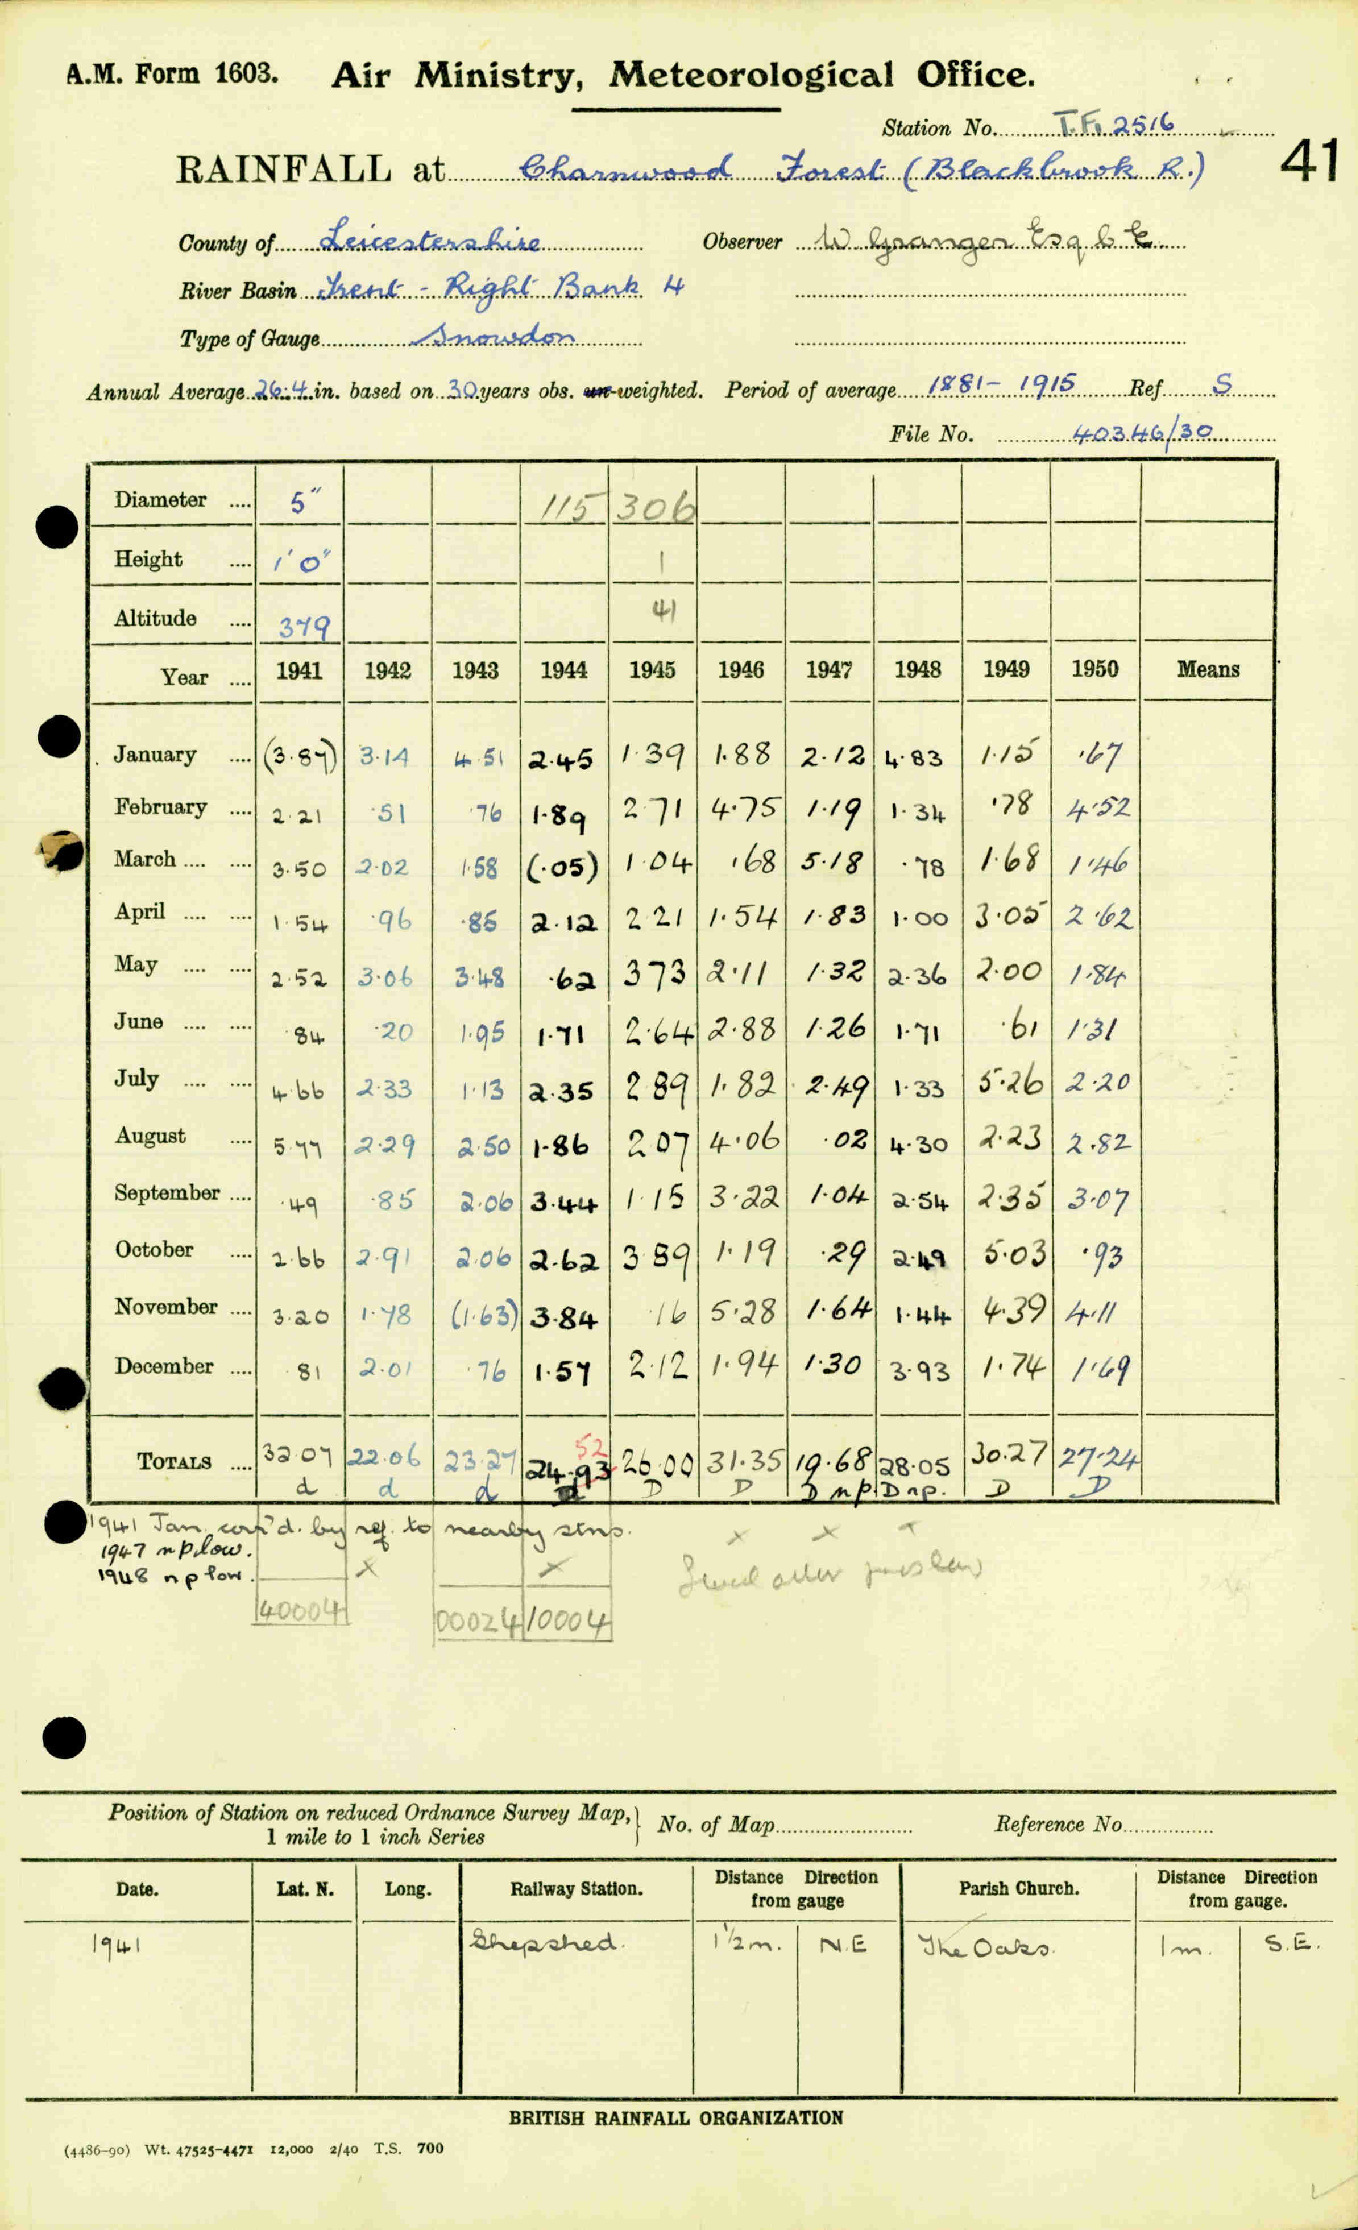 A.M. Form 1603. Air Ministry, Meteorological Office.
Station No. T.F. 2516
RAINFALL at Charnwood Forest (Blackbrook R.) 41
County of Leicestershire Observer W Granger Esq C E
River Basin Trent - Right Bank 4
Type of Gauge Snowdon
Annual Average 26.4 in. based on 30 years obs. un-weighted. Period of average 1881-1915 Ref S
File No. 40346/30
Diameter .... 5" 115 306
Height .... 1'0" 1
Altitude .... 379 41
Year .... 1941 1942 1943 1944 1945 1946 1947 1948 1949 1950 Means
January .... (3.87) 3.14 4.51 2.45 1.39 1.88 2.12 4.83 1.15 .67
February .... 2.21 .51 .76 1.89 2.71 4.75 1.19 1.34 .78 4.52
March .... .... 3.50 2.02 1.58 (.05) 1.04 .68 5.18 .78 1.68 1.46
April .... .... 1.54 .96 .85 2.12 2.21 1.54 1.83 1.00 3.05 2.62
May .... .... 2.52 3.06 3.48 .62 3.73 2.11 1.32 2.36 2.00 1.84
June .... .... .84 .20 1.95 1.71 2.64 2.88 1.26 1.71 .61 1.31
July .... .... 4.66 2.33 1.13 2.35 2.89 1.82 2.49 1.33 5.26 2.20
August .... 5.77 2.29 2.50 1.86 2.07 4.06 .02 4.30 2.23 2.82
September .... .49 .85 2.06 3.44 1.15 3.22 1.04 2.54 2.35 3.07
October .... 2.66 2.91 2.06 2.62 3.89 1.19 .29 2.49 5.03 .93
November .... 3.20 1.78 (1.63) 3.84 .16 5.28 1.64 1.44 4.39 4.11
December .... .81 2.01 .76 1.57 2.12 1.94 1.30 3.93 1.74 1.69
52
TOTALS .... 32.07 22.06 23.27 24.93 26.00 31.35 19.68 28.05 30.27 27.24
d d d d D D D n p. D n p. D D
1941 Jan. corr'd. by ref. to nearby stns.
1947 n p low.
1948 n p low.
40004 00024 10004
Position of Station on reduced Ordnance Survey Map, 1 mile to 1 inch Series } No. of Map Reference No.
Date. Lat. N. Long. Railway Station. Distance Direction from gauge Parish Church. Distance Direction from gauge.
1941 Shepshed. 1½ m. N.E The Oaks. 1 m. S.E.
BRITISH RAINFALL ORGANIZATION
(4486-90) Wt. 47525-4471 12,000 2/40 T.S. 700